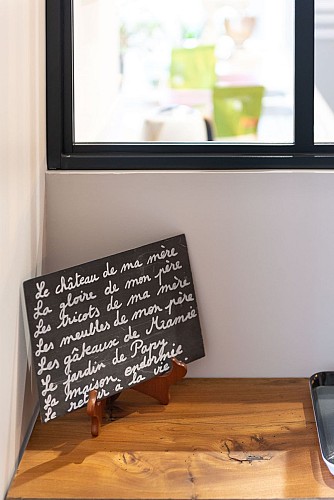 Le château de ma mère
La gloire de mon père
Les tricots de ma mère
Les meubles de mon père
Les gâteaux de Mamie
Le jardin de Papy
La maison endormie
Le retour à la vie